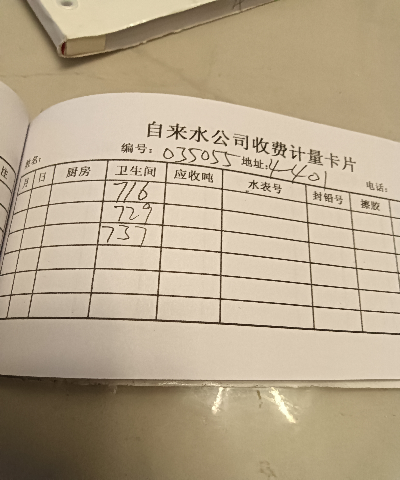 自来水公司收费计量卡片
姓名： 编号：035055 地址：4-401 电话：
月 日 厨房 卫生间 应收吨 水表号 封铅号 擦胶
716
729
737